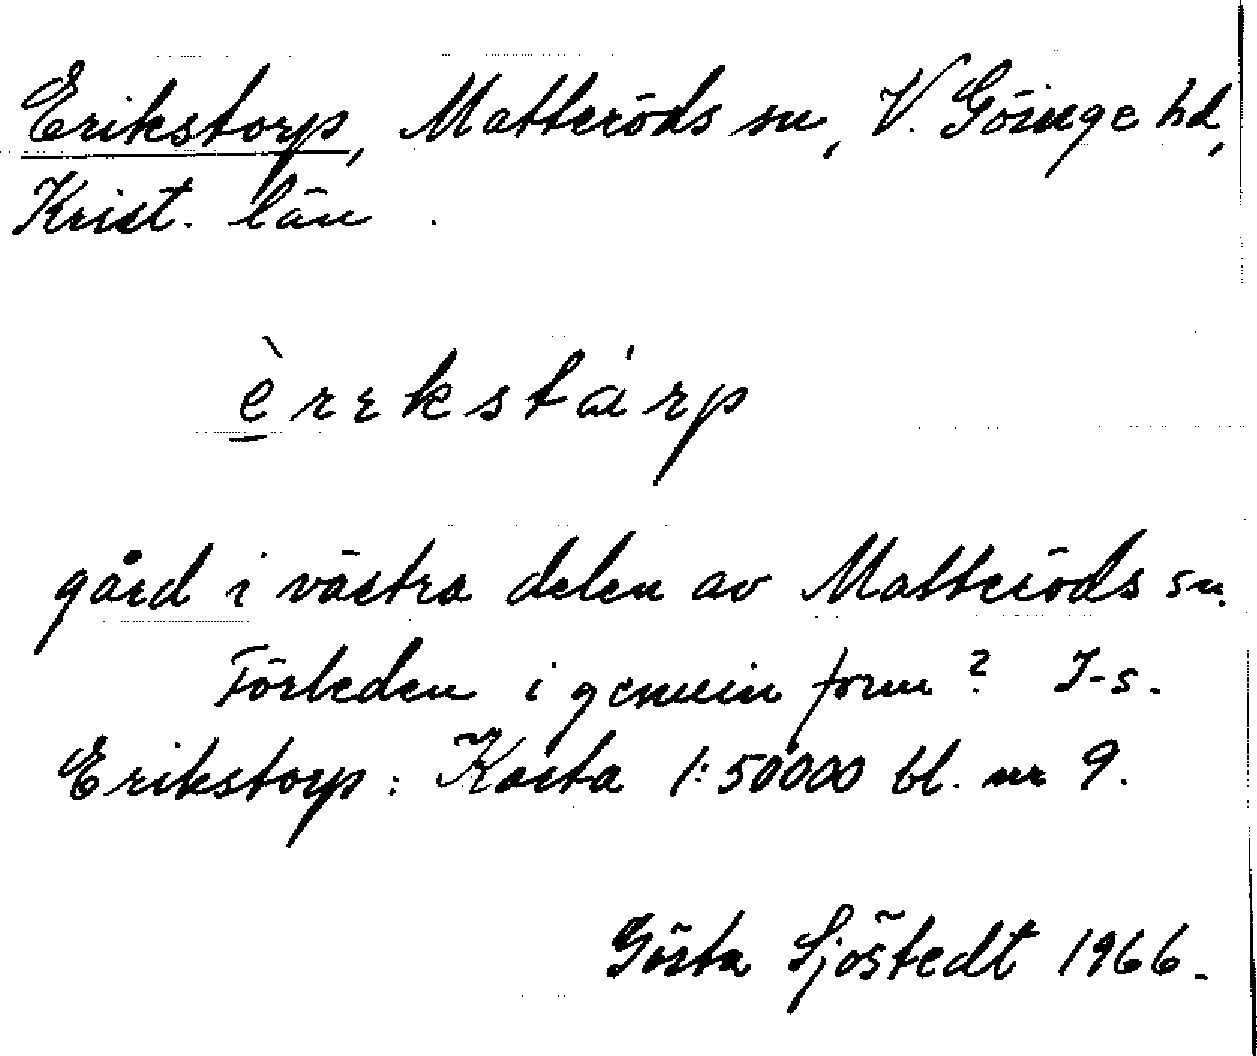 Erikstorp, Matteröds sn, V. Göinge hd,
Krist. län.
è̱rekstàrp
gård i västra delen av Matteröds sn.
Förleden i genuin form? I-s.
Erikstorp: Karta 1:50000 bl. nr 9.
Gösta Sjöstedt 1966.